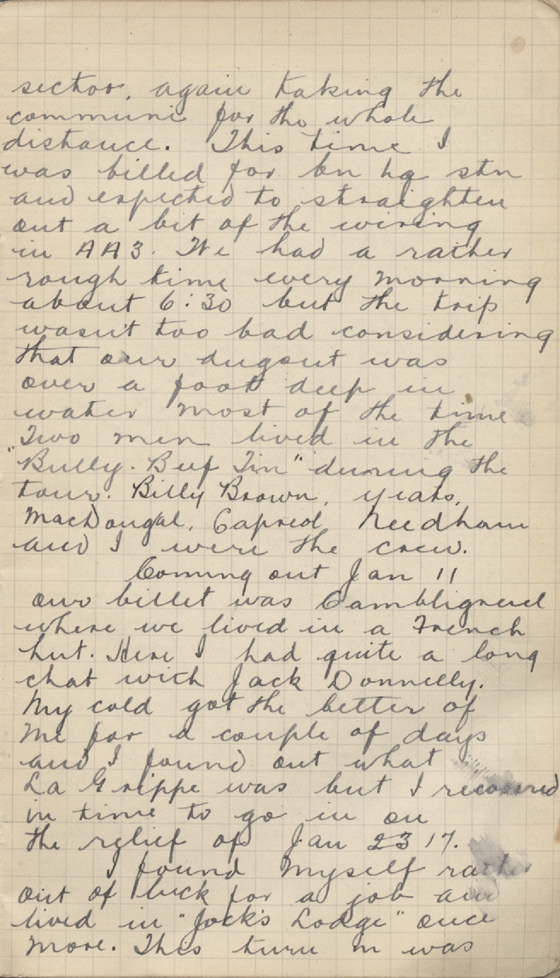 sector, again taking the
communi for the whole
distance. This time I
was billed for bn hq stn
and expected to straighten
out a bit of the wiring
in AA3. We had a rather
rough time every morning
about 6:30 but the trip
wasn't too bad considering
that our dugout was
over a foot deep in
water most of the time
Two men lived in the
"Bully-Beef Tin" during the
tour. Billy Brown, Yeats,
MacDougal, Capreol, Needham
and I were the crew.
Coming out Jan 11
our billet was Cambligneul
where we lived in a French
hut. Here I had quite a long
chat with Jack Donnelly.
My cold got the better of
me for a couple of days
and I found out what
La Grippe was but I recovered
in time to go in on
the relief of Jan 23 17.
I found myself rather
out of luck for a job and
lived in "Jock's Lodge" once
more. This turn in was